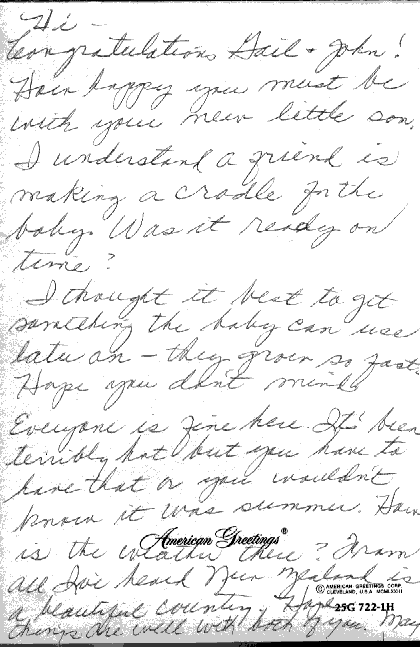 Hi -
Congratulations Gail + John!
How happy you must be
with your new little son.
I understand a friend is
making a cradle for the
baby. Was it ready on
time?
I thought it best to get
something the baby can use
later on - they grow so fast.
Hope you don't mind.
Everyone is fine here. It's been
terribly hot but you have to
have that or you wouldn't
know it was summer. How
American Greetings®
is the weather there? From
all I've heard New Zealand is
© AMERICAN GREETINGS CORP.
CLEVELAND, U.S.A.
a beautiful country. Hope
25G 722-1H
things are well with both of you. May